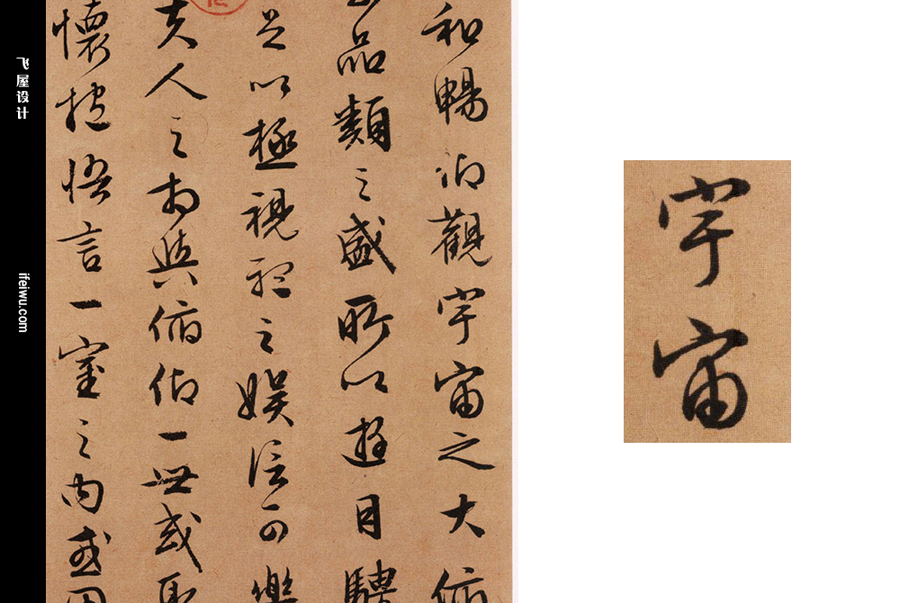 和暢仰觀宇宙之大俯
品類之盛所以遊目騁
足以極視聽之娛信可樂
夫人之相與俯仰一世或取
懷抱悟言一室之內或因
宇宙
飞屋设计
ifeiwu.com